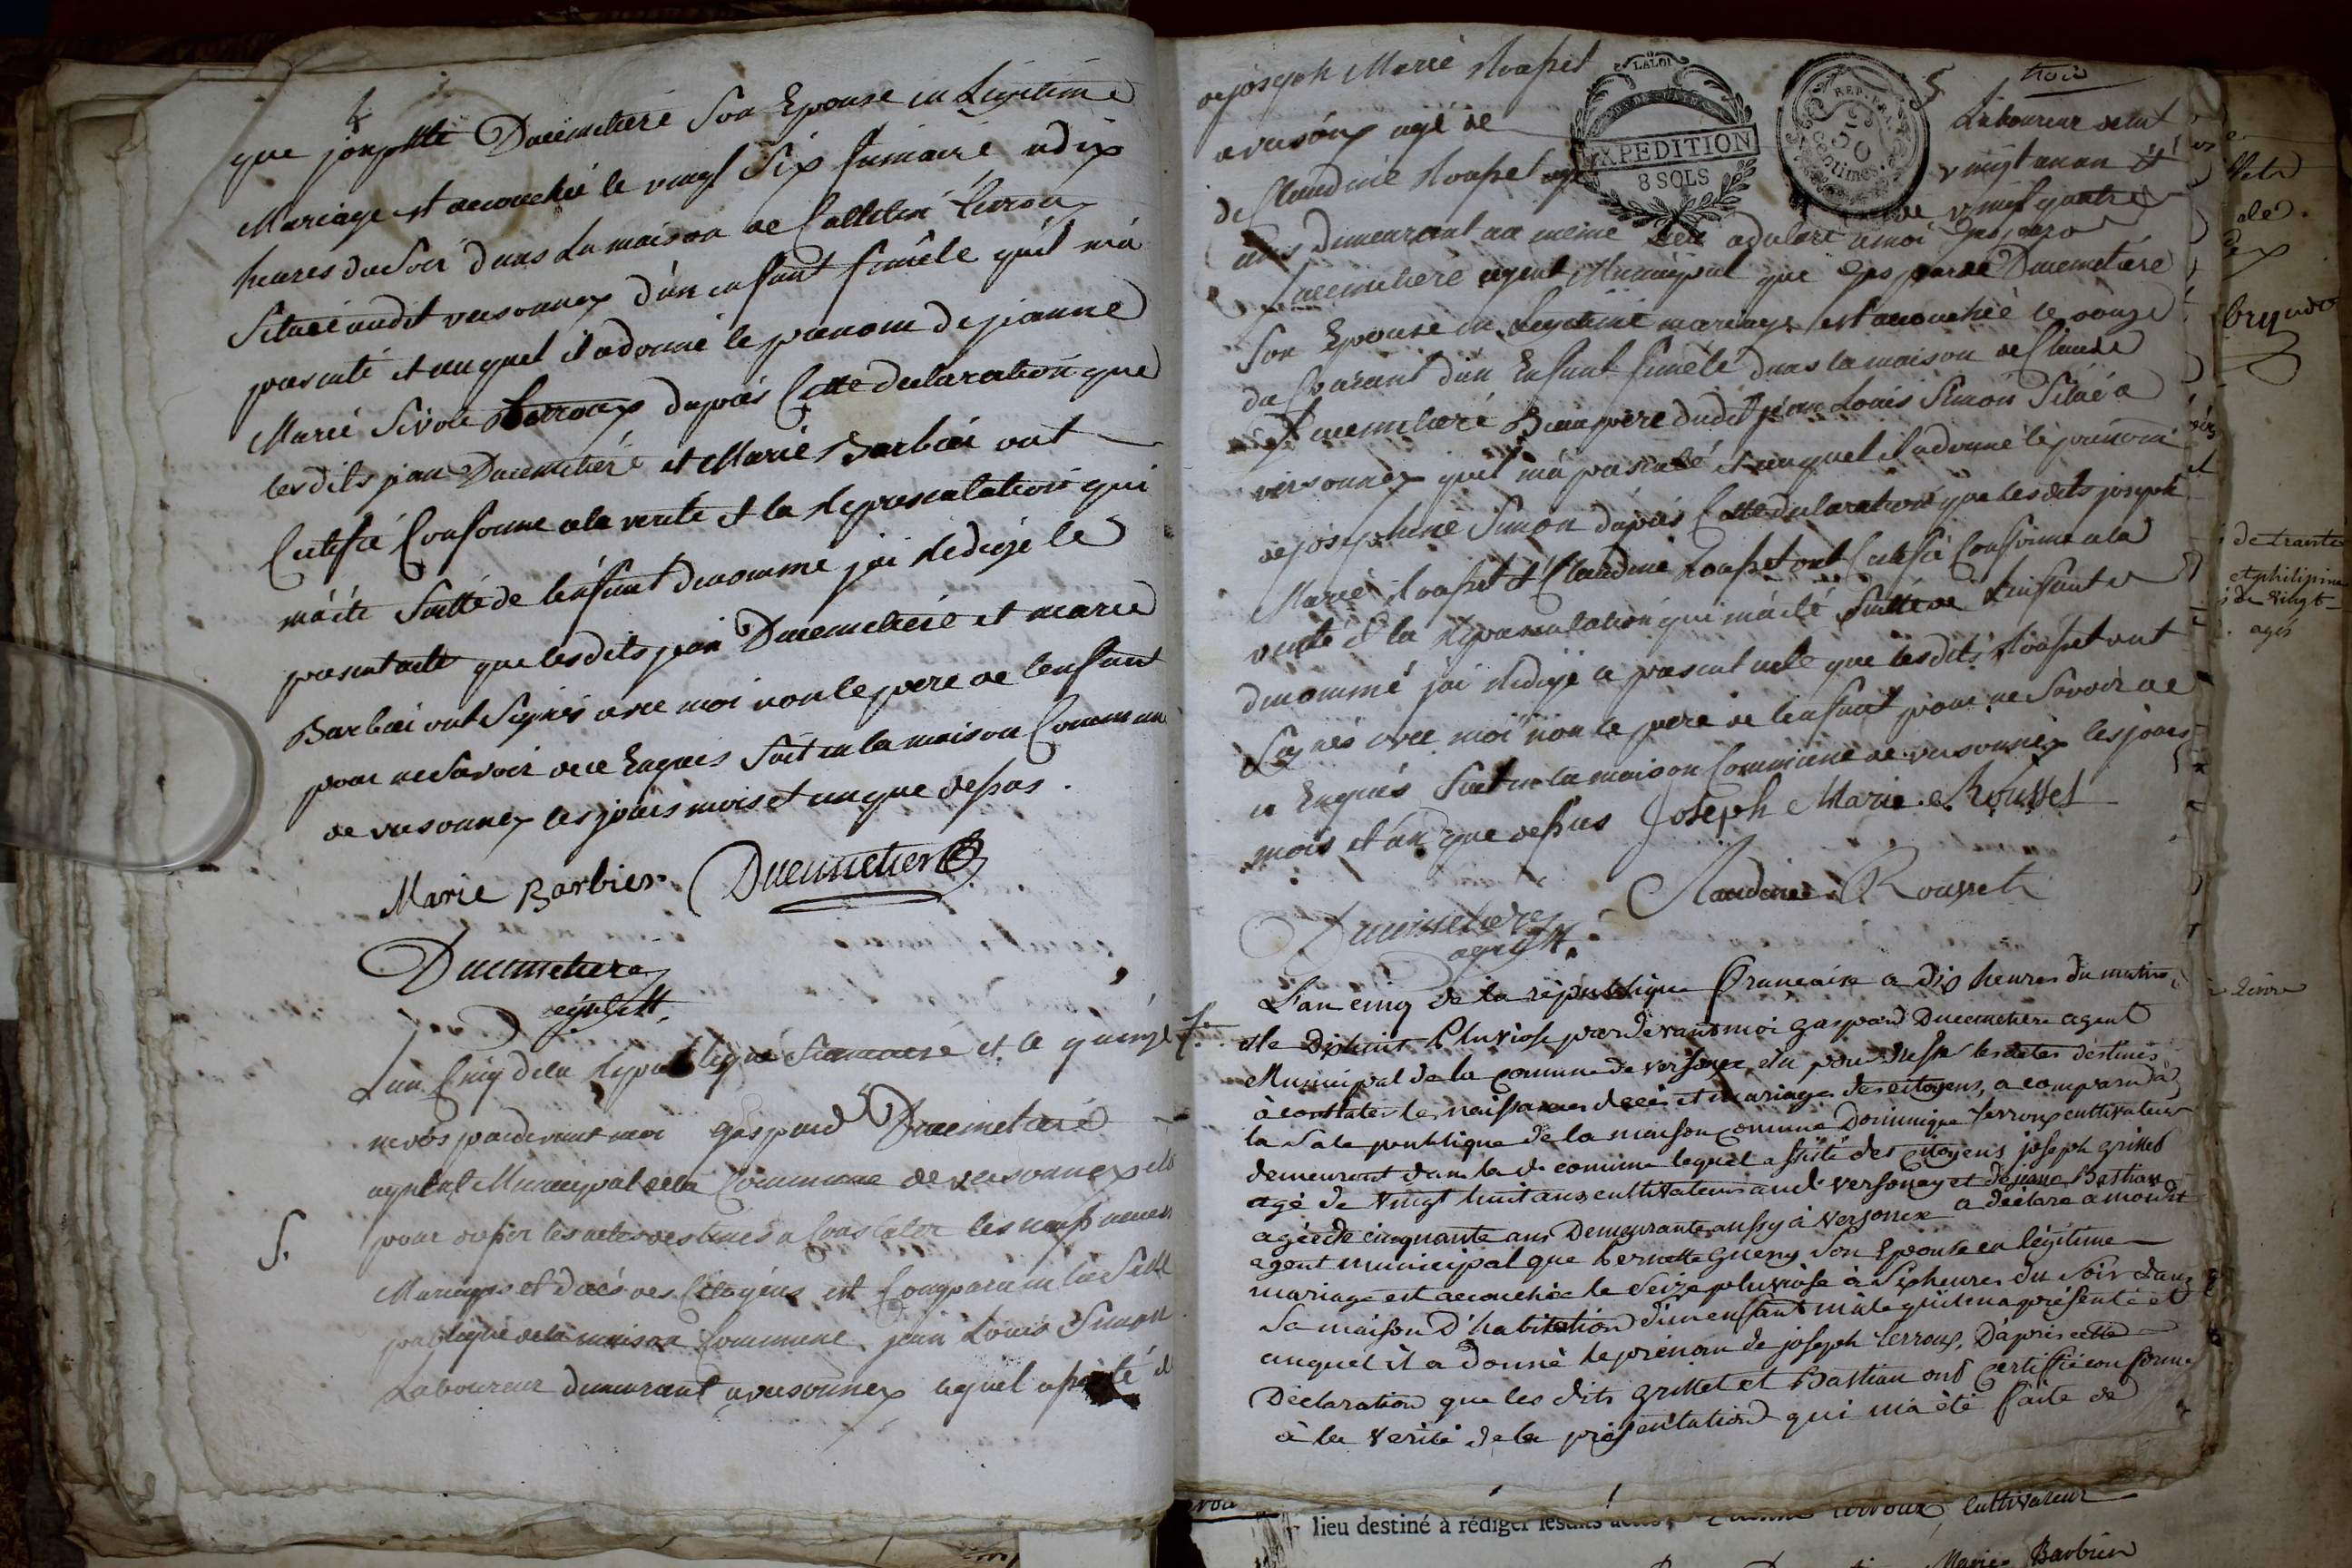 que josephte Ducimetiere Son Epouse en Legitime
Mariage est accouchée le vingt Six frimaire a dix
heures du Soir dans La maison de
Située audit versonnex d'un enfant femêle qu'il m'a
presenté et auquel il a donné le prenom de jeanne
Marie Terroux daprès Cette declaration que
lesdits jean Ducimetiére et Marie Barbier ont
Certifié Conforme a la verité et la representation qui
m'a été faitte de l'enfant denommé jai redigé le
present acte que lesdits jean Ducimetiére et marie
Barbier ont Signés avec moi non le pere de l'enfant
pour ne Savoir de ce Enquis fait en la maison Commune
de versonnex les jours mois et an que dessus.
Marie Barbier Ducimetiere
Ducimetiere
agent
Lan Cinq de la republique francaise et le quinze
nivôs pardevant moi gaspard Ducimetiére
agent Municipal de la Commune de versonnex elu
pour dresser les actes destinés a Constater les naissances
S.
Mariages et décès des Citoyens est Comparu en la Salle
publique de la maison Commune jean Louis Simon
Laboureur demeurant a versonnex lequel assisté de
trois
de joseph Marie Rousset
LA LOI
EXPEDITION
8 SOLS
REP. FRA.
50
Centimes
Laboureur de cet
a versonnex agé de
vingt un an et
de Claudine Rousset agé
de vingt quatre
ans demeurant au même lieu a déclaré a moi gaspard
Ducimetiére agent Municipal que gasparde Ducimetiére
Son Epouse en Legitime mariage est accouchée le onze
du Courant d'un Enfant femêle dans la maison de Claude
Ducimetiere Beaupere dudit jean Louis Simon Située a
versonnex quil m'a presenté et auquel il a donné le prenom
de josephine Simon daprès Cette declaration que lesdits joseph
Marie Rousset et Claudine Rousset ont Certifié Conforme a la
verité et la representation qui m'a été faitte de L'enfant
denommé jai redigé le present acte que lesdits Rousset ont
Signés avec moi non le pere de l'enfant pour ne Savoir de
ce Enquis fait en la maison Commune de versonnex les jours
mois et an que dessus Joseph Marie Rousset
Claudine Rousset
Ducimetiere
agent
L'an cinq de la république Francaise a dix heures du matin
et le dixhuit Pluviose par devant moi gaspard Ducimetiere agent
Municipal de la commune de versonex elu pour dresser les actes destinés
à constater les naissances decès et mariages des citoyens, a comparu dàs
la Sale publique de la maison comune Dominique Terroux cultivateur
demeurant dans la de comune lequel assisté des citoyens joseph grisset
agé de vingt huit ans cultivateur aud versonex et de jeane Bastian
agée de cinquante ans Demeurante aussy à versonex a déclaré a moi dit
agent municipal que Pernette gueny Son Epouse en légitime
mariage est accouchée le Seize pluviose à Six heures du Soir dans
Sa maison D'habitation d'un enfant mâle qu'il m'a présenté et
auquel il a donné le prénom de joseph Terroux, D'après cette
Déclaration que les dits grisset et Bastian ont certiffié conforme
à la Vérité de la présentation qui m'a été faite de
de trante
et philipine
de vingt
agés
lieu destiné à rédiger lesdits actes, Terroux, cultivateur
Marie Barbier